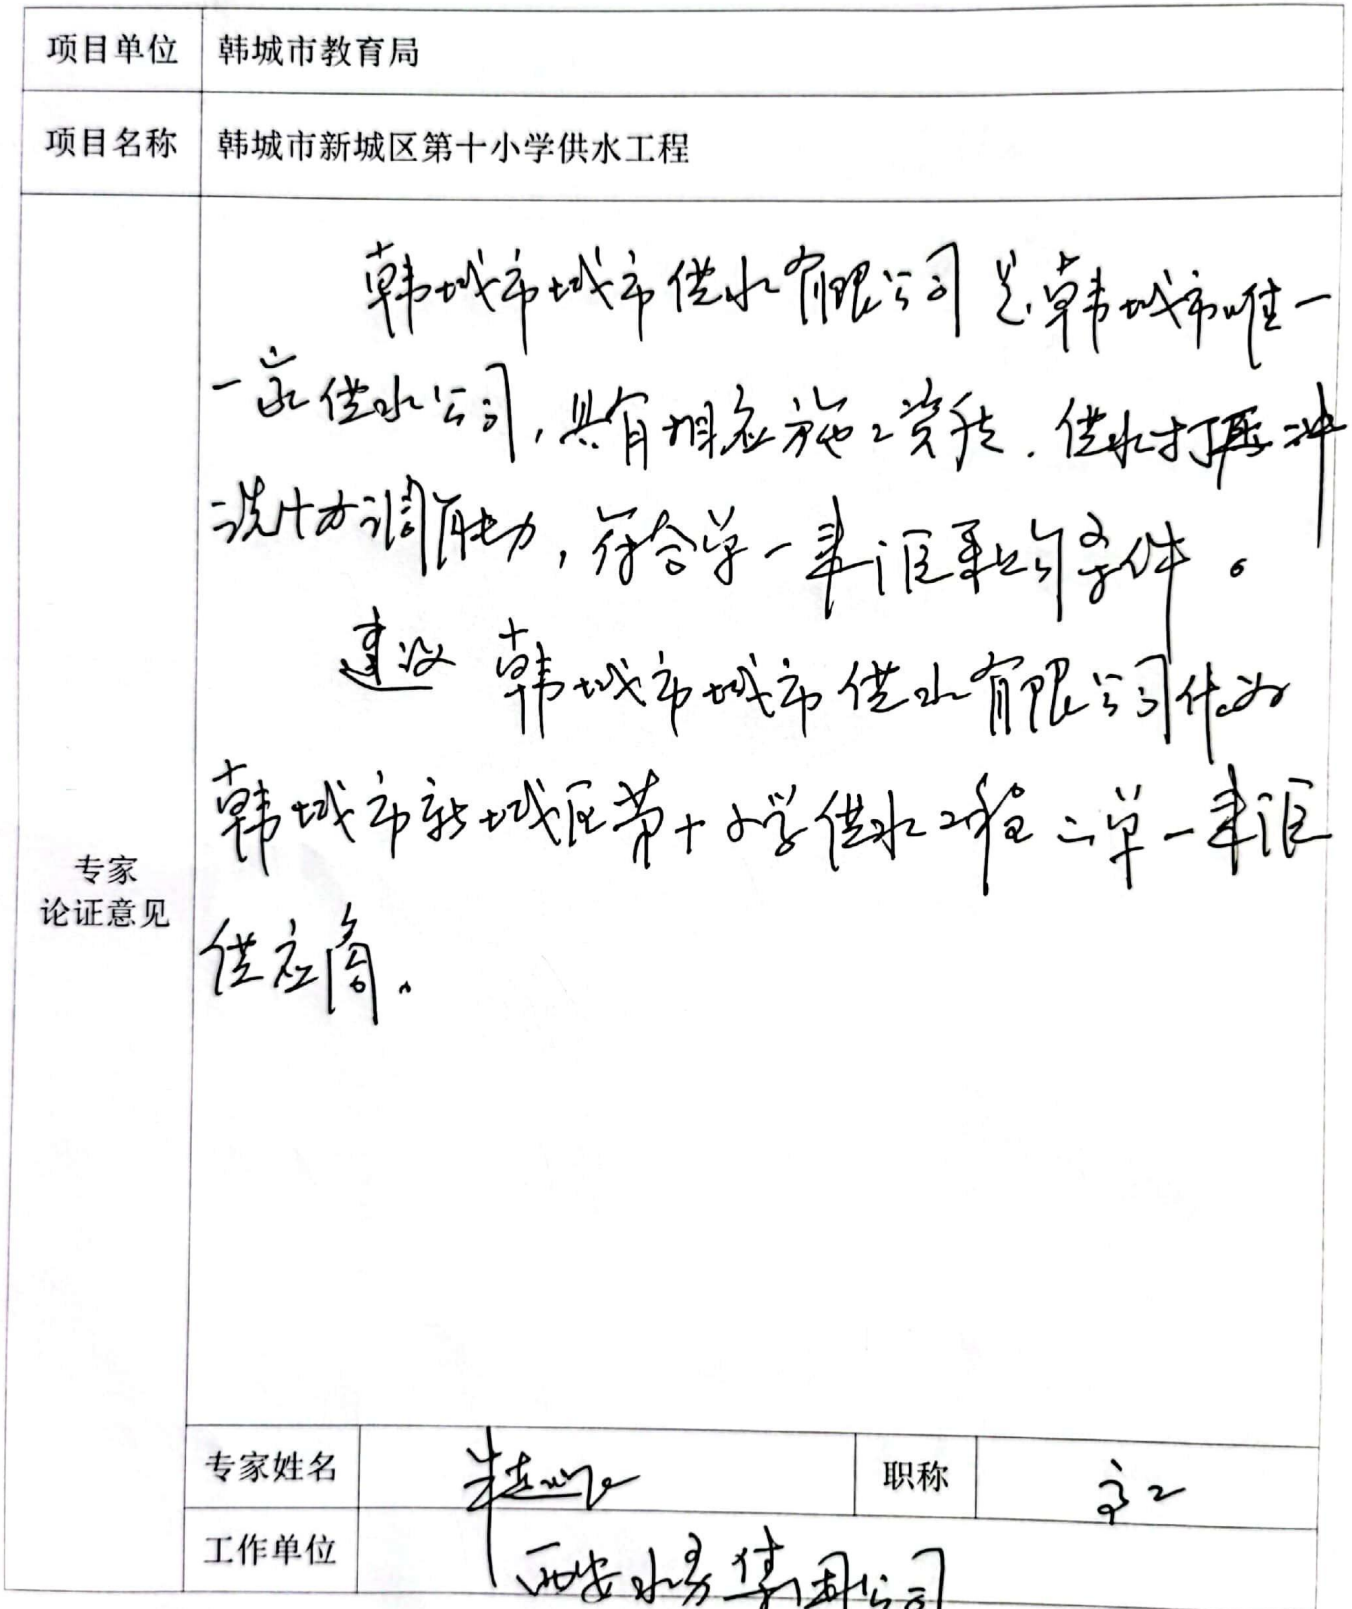 项目单位 韩城市教育局
项目名称 韩城市新城区第十小学供水工程
韩城市城市供水有限公司是韩城市唯一
一家供水公司,具有相应施工资质.供水打压冲
洗协调能力,符合单一来源采购条件。
建议 韩城市城市供水有限公司作为
韩城市新城区第十小学供水工程之单一来源
供应商。
专家
论证意见
专家姓名 职称 高工
工作单位 西安水务集团公司